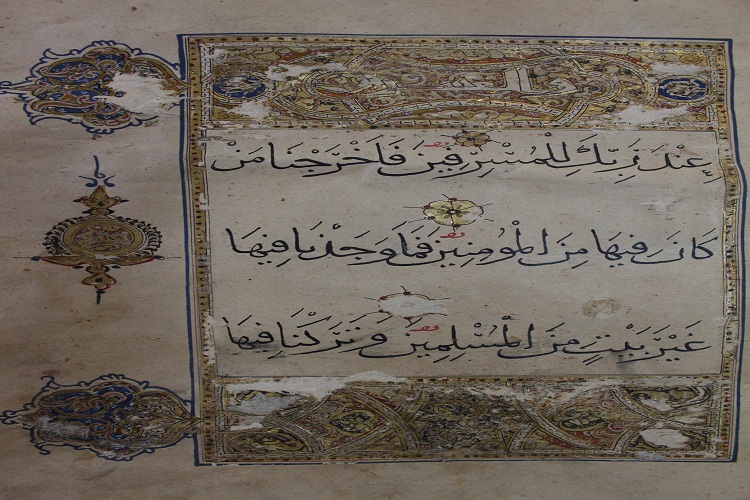 عِنْدَ رَبِّكَ لِلْمُسْرِفِينَ فَأَخْرَجْنَا مَنْ
كَانَ فِيهَا مِنَ الْمُؤْمِنِينَ فَمَا وَجَدْنَا فِيهَا
غَيْرَ بَيْتٍ مِنَ الْمُسْلِمِينَ وَتَرَكْنَا فِيهَا